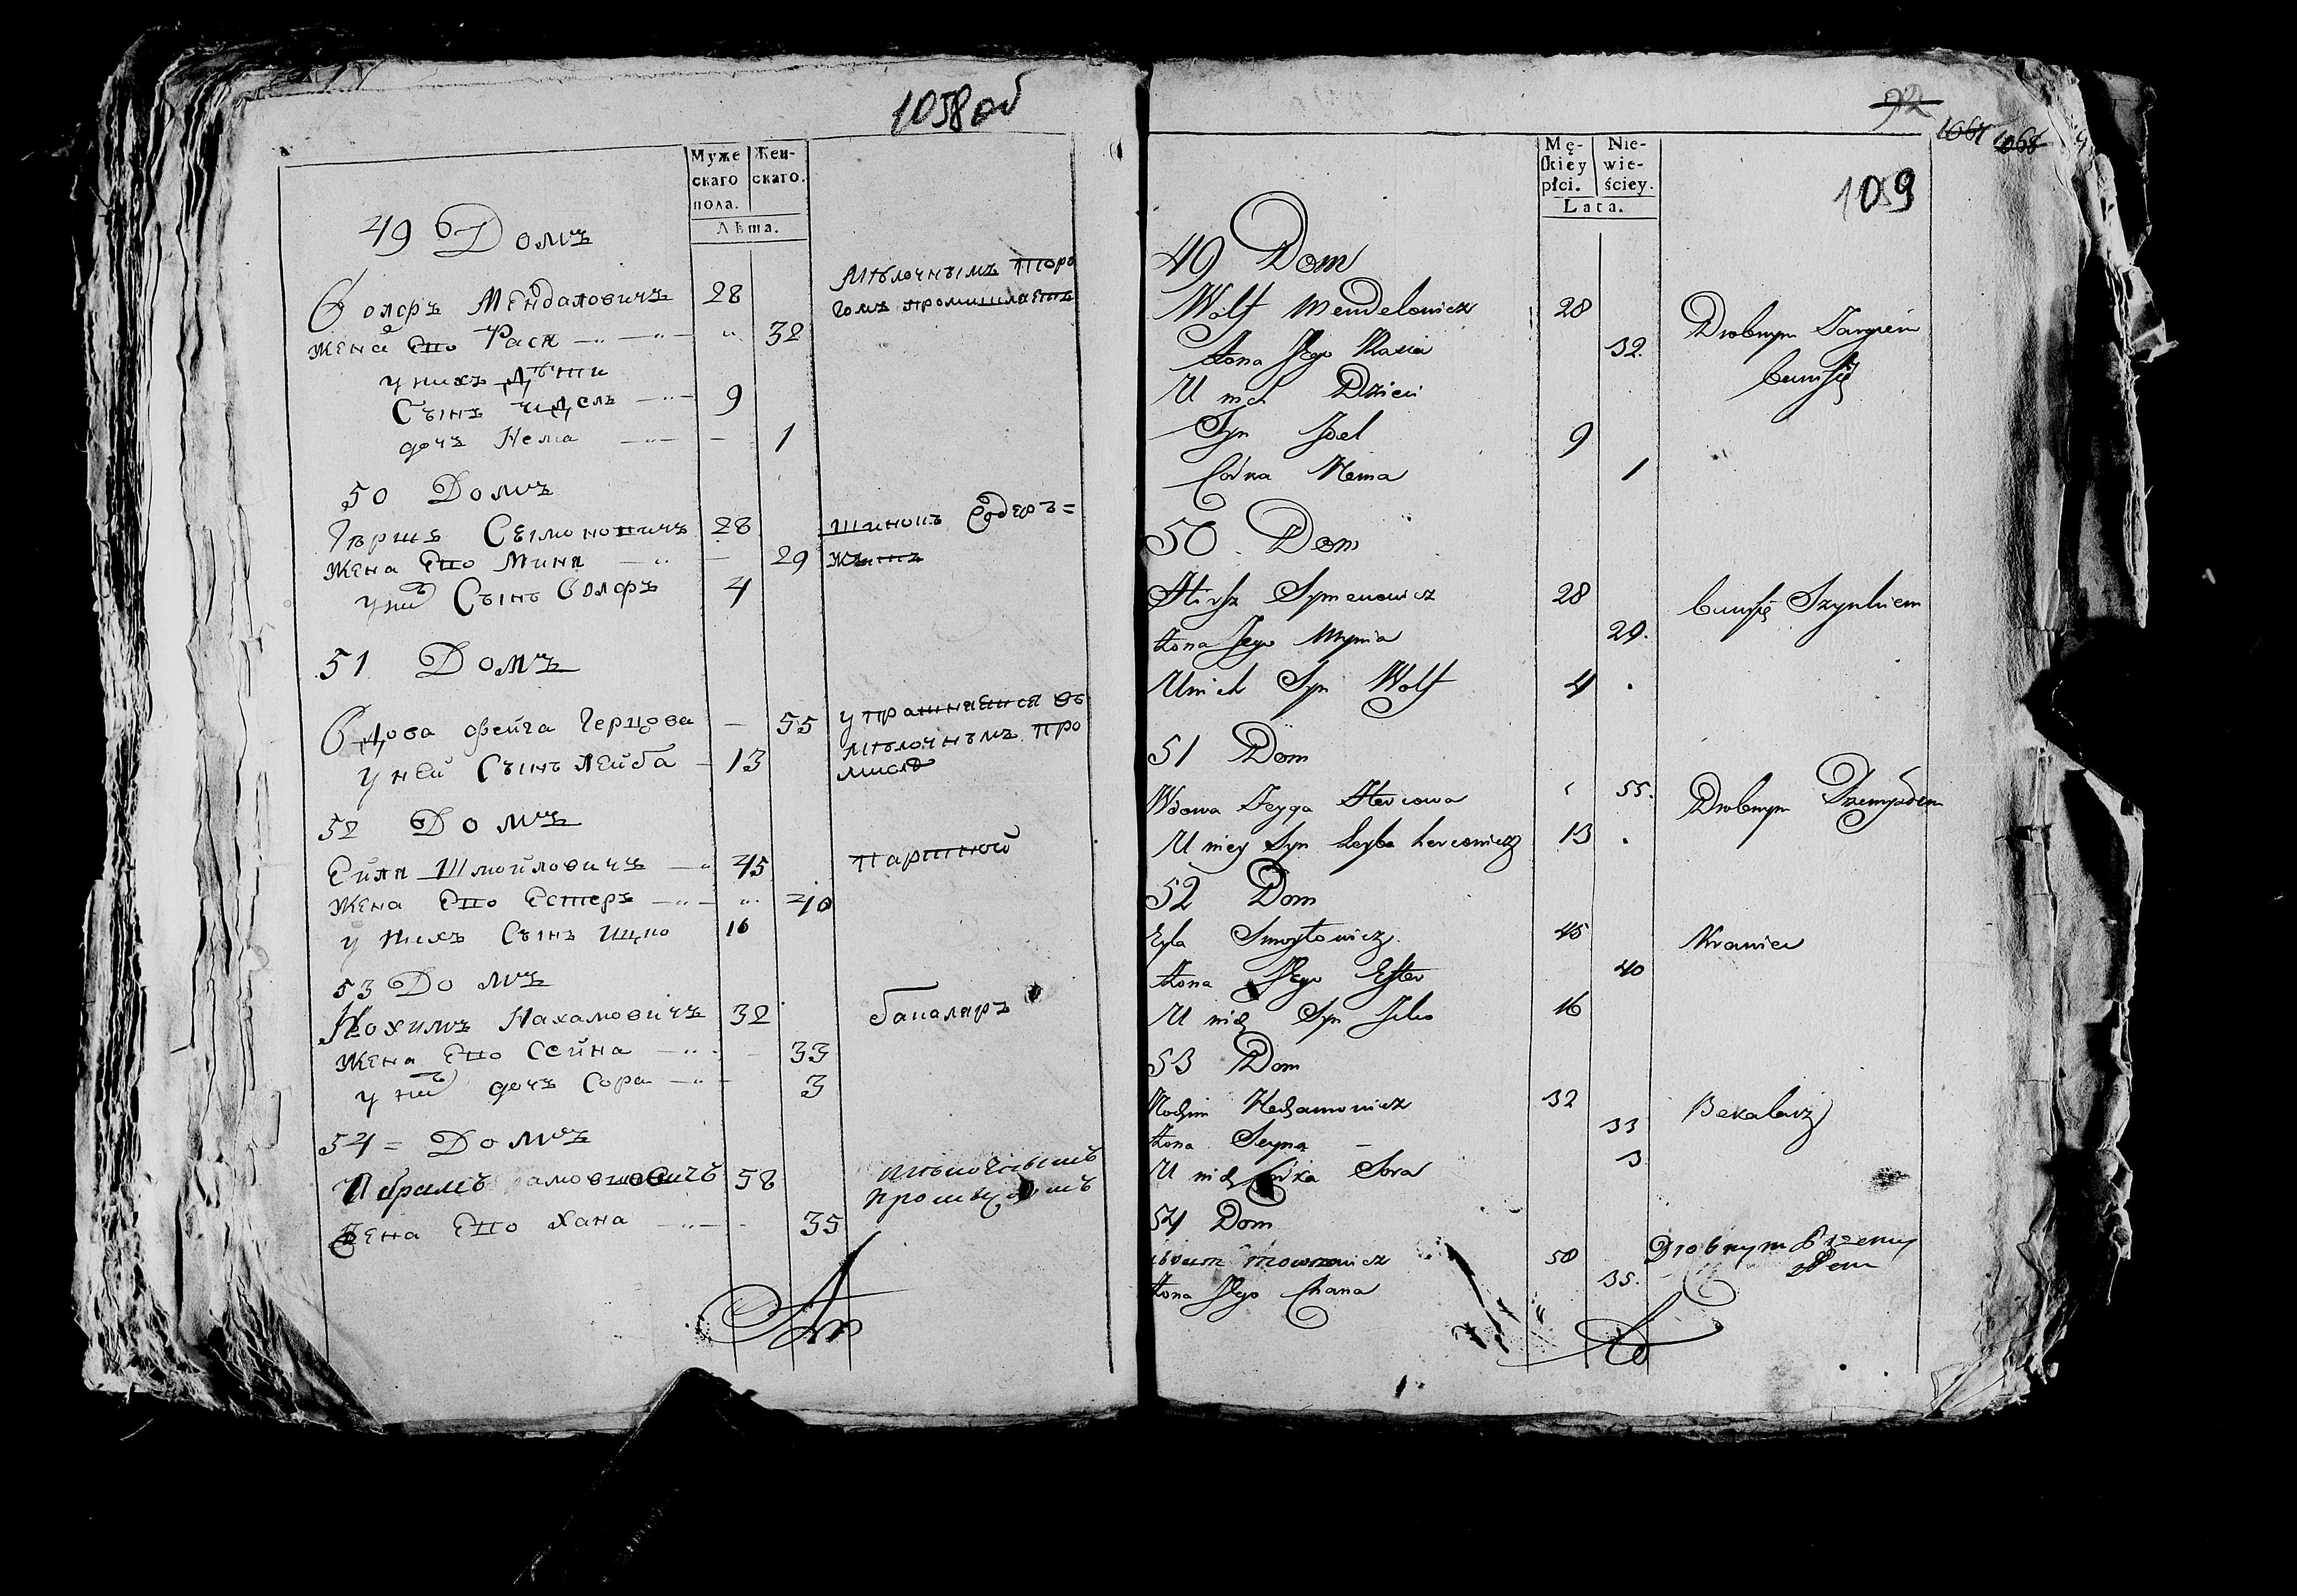 1058 об
Муже
скаго
пола.
Жен-
скаго.
Лѣта.
49 Домъ
Волфъ Мендаловичъ 28 Мѣлочнымъ торъ
гомъ промишляетъ
жена его Рася 32
у нихъ дѣти
Сынъ 9
дочъ Нема 1
50 Домъ
Гершъ Сымоновичъ 28 шинокъ Содеръ=
Жена его Миня 29 жытъ
у них Сынъ Волфъ 4
51 Домъ
Вдова Фейга Герцова 55 упражняется въ
мѣлочнымъ про
у ней Сынъ Лейба 13 мислѣ
52 Домъ
Ейля Шмойловичъ 45
Жена его Естеръ 40
у нихъ Сынъ Ицко 16
53 Домъ
Нохимъ Нахамовичъ 32 бакаляръ
Жена его Сейна 33
у них дочъ Сора 3
54 = Домъ
Абрамъ 58
Жена его Хана 35
92
1067 1068
1059
Mę-
skiey
płci.
Nie-
wie-
ściey.
Lata.
49 Dom
Wolf Mendelowicz 28 Drobnym Targiem
Żona Jego Rasia 32. bawi się
U nich Dzieci
Syn Joel 9
Córka Nema 1
50. Dom
Hirsz Symonowicz 28 bawi się Szynkiem
Żona Jego Mynia 29.
U nich Syn Wolf 4
51 Dom
Wdowa Feyga Hercowa 55. Drobnym Przemysłem
U niey Syn Leyba Hercowicz 13
52 Dom
Eyla Smoyłowicz 45 Krawiec
Żona Jego Ester 40
U nich Syn Icko 16
53 Dom
Nochim Nachamowicz 32 Bakalarz
Żona Seyna 33
U nich Córka Sora 3
54 Dom
Abram 58 Drobnym Przemy
słem
Żona Jego Chana 35.